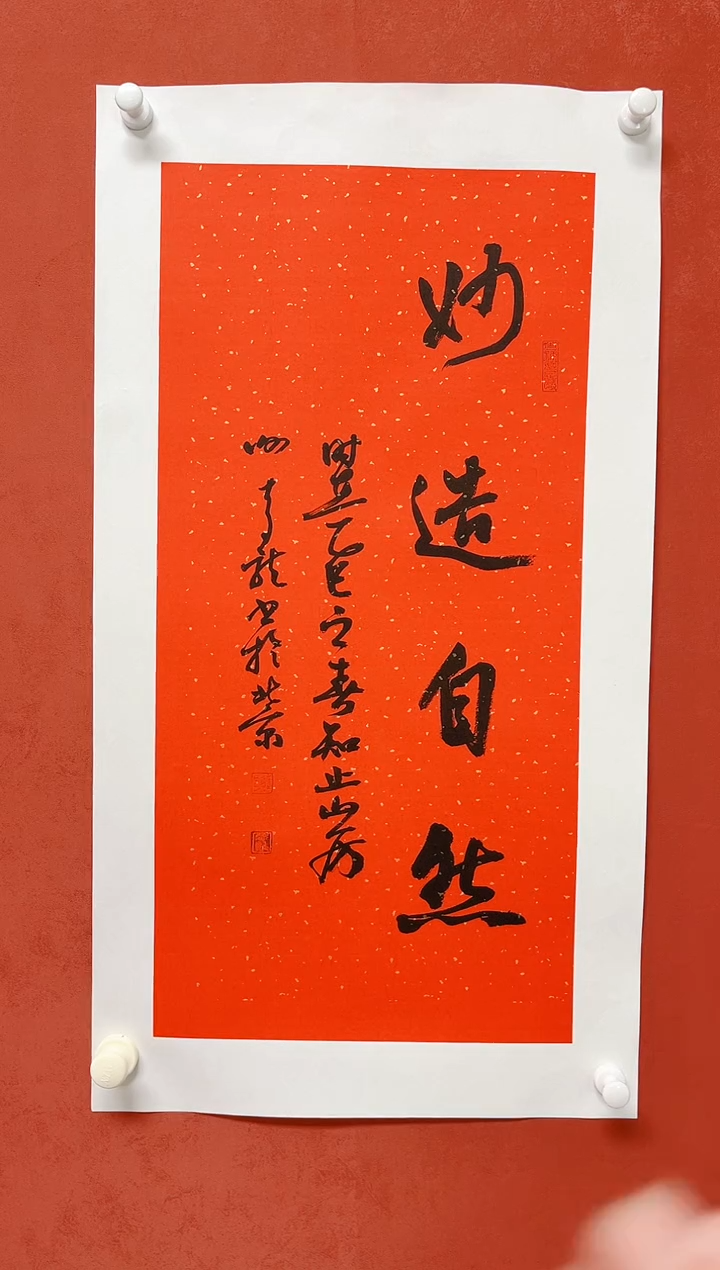 妙造自然
时在乙巳之春知止山房
书于北京